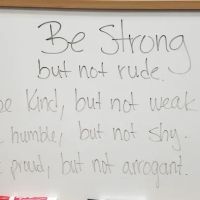 Be Strong
but not rude.
be Kind, but not weak
humble, but not shy.
proud, but not arrogant.